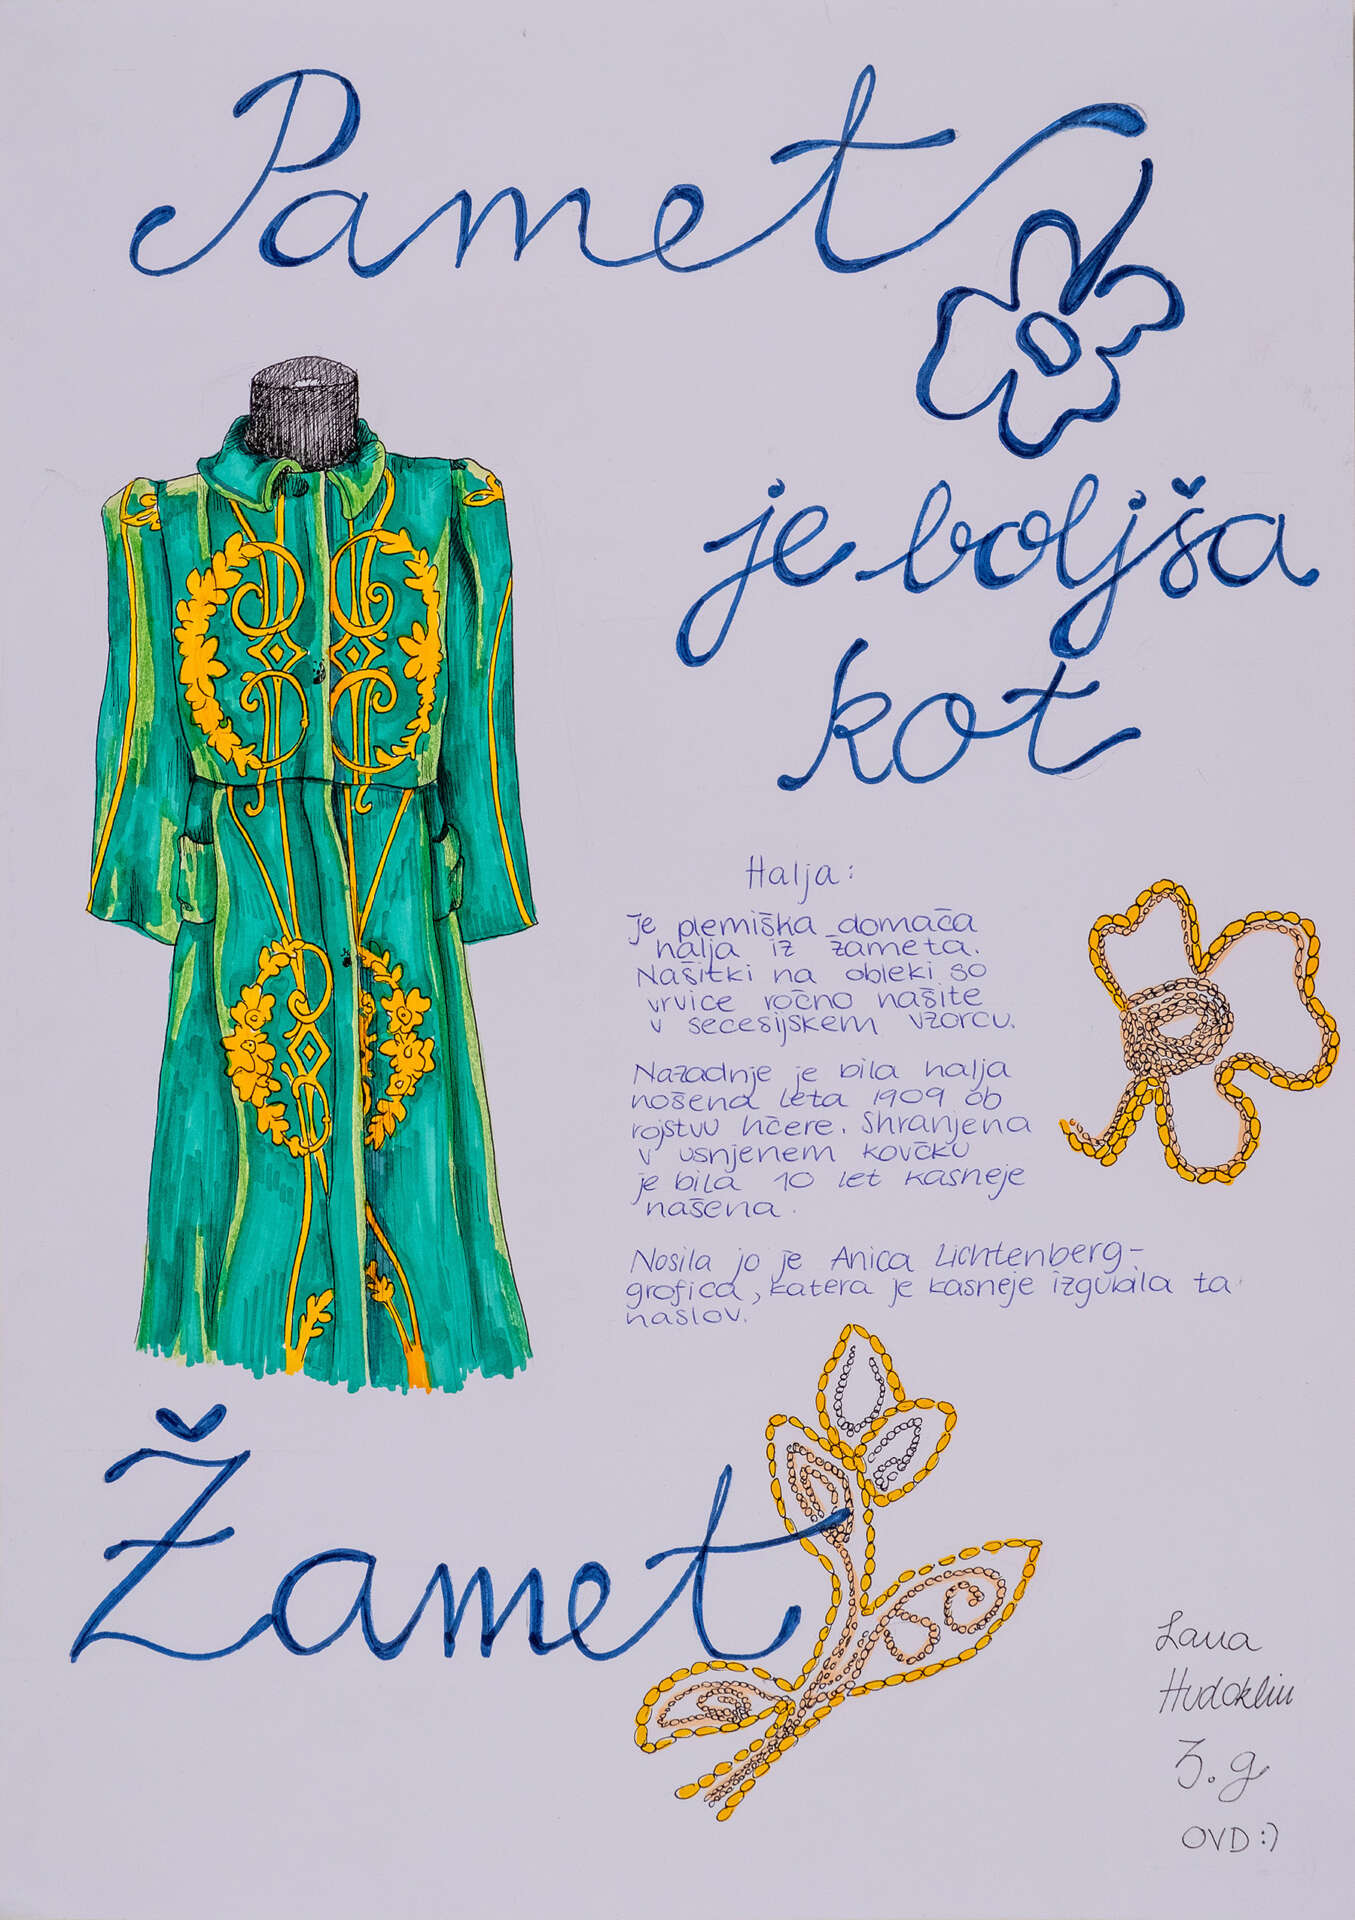 Pamet
je boljša
kot
Halja:
Je plemiška domača
halja iz žameta.
Našitki na obleki so
vrvice ročno našite
v secesijskem vzorcu.
Nazadnje je bila halja
nošena leta 1909 ob
rojstvu hčere. Shranjena
v usnjenem kovčku
je bila 10 let kasneje
našena.
Nosila jo je Anica Lichtenberg-
grofica, katera je kasneje izgubila ta
naslov.
Žamet
Lana
Hudoklin
3.g
OVD :)